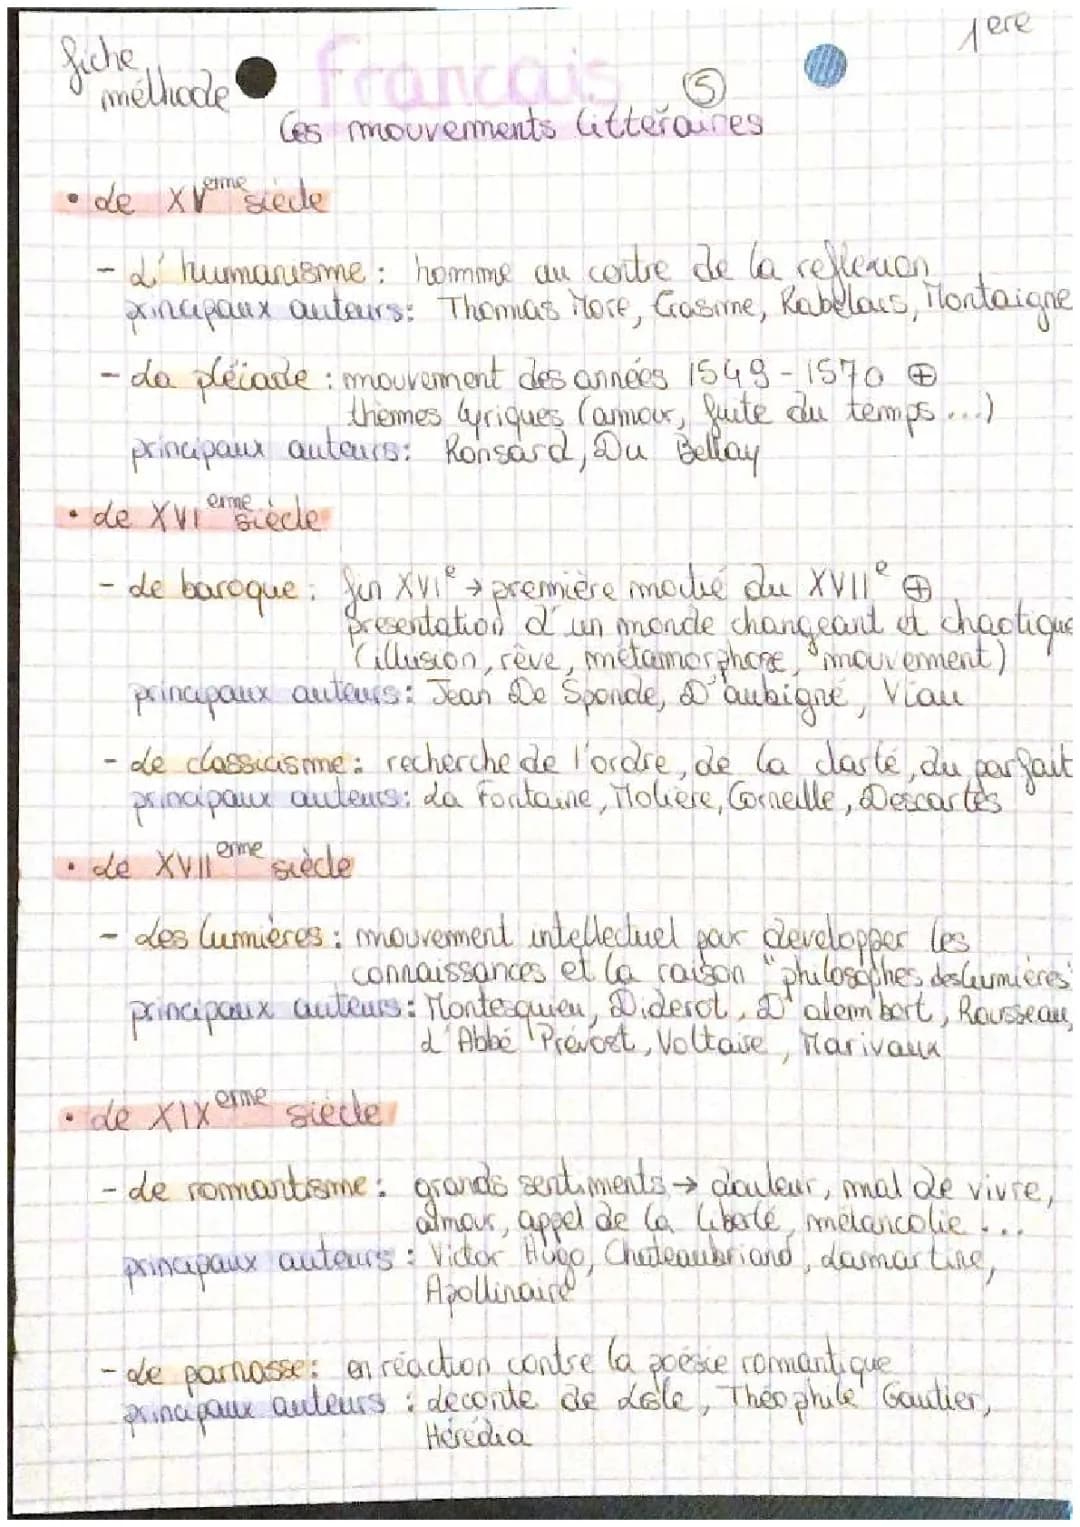 fiche
méthode
1ere
Français
5
Les mouvements littéraires
• Le XVeme siècle
- L'humanisme : homme au centre de la reflexion
principaux auteurs: Thomas More, Erasme, Rabelais, Montaigne
- La pléiade : mouvement des années 1549 - 1570 ⊕
thèmes lyriques (amour, fuite du temps ...)
principaux auteurs: Ronsard, Du Bellay
• Le XVIeme siècle
- Le baroque : fin XVIe → première moitié du XVIIe ⊕
présentation d'un monde changeant et chaotique
(illusion, rêve, métamorphose, mouvement)
principaux auteurs: Jean De Sponde, D'aubigné, Viau
- Le classicisme : recherche de l'ordre, de la clarté, du parfait
principaux auteurs: La Fontaine, Molière, Corneille, Descartes
• Le XVIIeme siècle
- Les lumières : mouvement intellectuel par developper les
connaissances et la raison "philosophes des lumières"
principaux auteurs: Montesquieu, Diderot, D'alembert, Rousseau,
L'Abbé Prévost, Voltaire, Marivaux
• Le XIXeme siècle
- Le romantisme : grands sentiments → douleur, mal de vivre,
amour, appel de la liberté, mélancolie ...
principaux auteurs : Victor Hugo, Chateaubriand, Lamartine,
Apollinaire
- Le parnasse : en réaction contre la poésie romantique
principaux auteurs : Leconte de Lisle, Théophile Gautier,
Hérédia